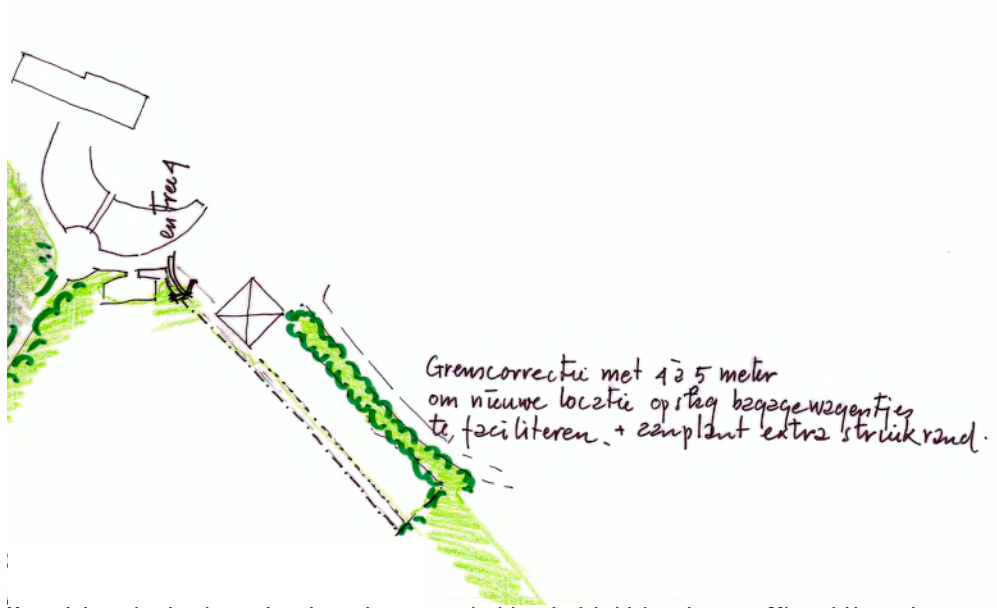 entree 4
Grenscorrectie met 4 à 5 meter
om nieuwe locatie opslag bagagewagentjes
te faciliteren. + aanplant extra struikrand.